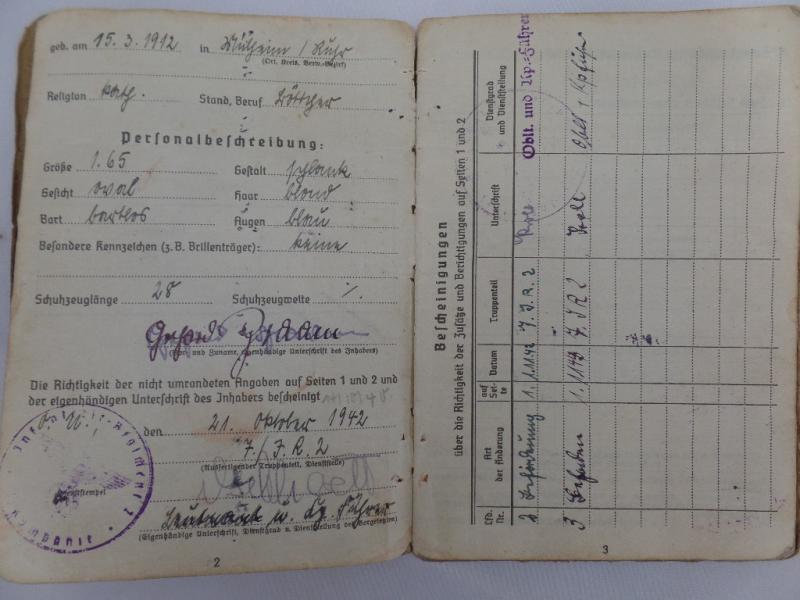 geb. am 15.3.1912 in Mülheim / Ruhr
(Ort, Kreis, Verw.-Bezirk)
Religion kath. Stand, Beruf Böttcher
Personalbeschreibung:
Größe 1.65 Gestalt schlank
Gesicht oval Haar blond
Bart bartlos Augen blau
Besondere Kennzeichen (z. B. Brillenträger): keine
Schuhzeuglänge 28 Schuhzeugweite /.
(Vor- und Zuname, eigenhändige Unterschrift des Inhabers)
Die Richtigkeit der nicht umrandeten Angaben auf Seiten 1 und 2 und
der eigenhändigen Unterschrift des Inhabers bescheinigt
O.U., den 21. Oktober 1942
7./J.R. 2
(Ausfertigender Truppenteil, Dienststelle)
Dienststempel
Infanterie-Regiment 2
Kompanie
Leutnant u. Kp. Führer
(Eigenhändige Unterschrift, Dienstgrad u. Dienststellung des Vorgesetzten)
2
Bescheinigungen
über die Richtigkeit der Zusätze und Berichtigungen auf Seiten 1 und 2
Lfd. Nr. Art der Änderung auf Sei-te Datum Truppenteil Unterschrift Dienstgrad und Dienststellung
Beförderung 1. 1.11.42 7. J.R. 2 Oblt. und Kp.-Führer
3 1. 7. J R 2
3